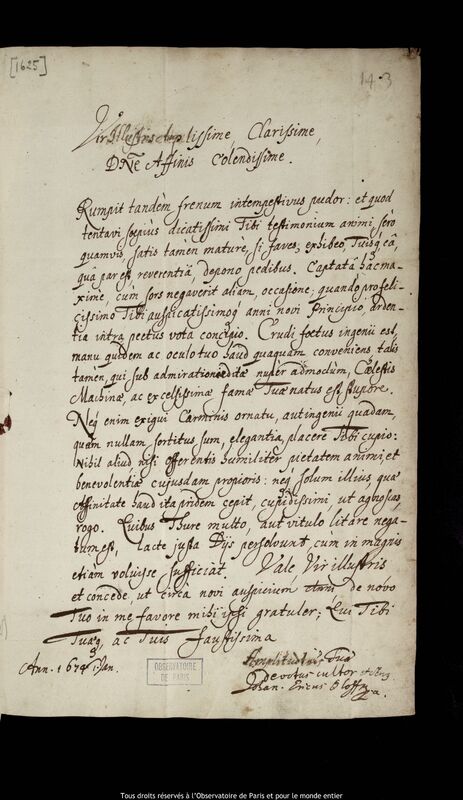 [1625]
143
Vir Illustris Amplissime, Clarissime,
Dne Affinis Colendissime.
Rumpit tandem frenum intempestivus pudor: et quod
tentavi sæpius dicatissimi Tibi testimonium animi, sero
quamvis, satis tamen mature, si faves, exhibeo, Tuisq, eâ,
quâ par est reverentiâ, depono pedibus. Captatâ hâc ma-
xime, cum sors negaverit aliam, occasione, quando profeli-
cissimo Tibi auspicatissimoq anni novi Principio arden-
tia intra pectus vota concipio. Crudi foetus ingenii est,
manu quidem ac oculo tuo haud quaquam conveniens talis
tamen, qui sub admiratione editæ nuper admodum, Coelestis
Machinæ, ac excelsissimæ famæ Tuæ natus est stupore.
Neq enim exigui Carminis ornatu, aut ingenii quadam,
quam nullam sortitus sum, elegantia, placere Tibi cupio:
Nihil aliud nisi offerentis humiliter pietatem animi, et
benevolentiæ cujusdam propioris: neq solum illius, quæ
Affinitate haud ita pridem cepit, cupidissimi, ut agnoscas,
rogo. Quibus Thure multo, aut vitulo litare nega-
tum est, lacte justa Dijs persolvunt, cum in magnis
etiam voluisse sufficiat. Vale Vir illustris
et concede, ut circa novi auspicium de novo
Tuo in me favore mihi ipsi gratuler; Qui Tibi
Tuisq, ac Tuis faustissima
Ann. 1674 1 Jan.
OBSERVATOIRE
DE PARIS
Amplitud. Tuæ
Devotus cultor et
Johan. Ericus Olhoff
Tous droits réservés à l'Observatoire de Paris et pour le monde entier